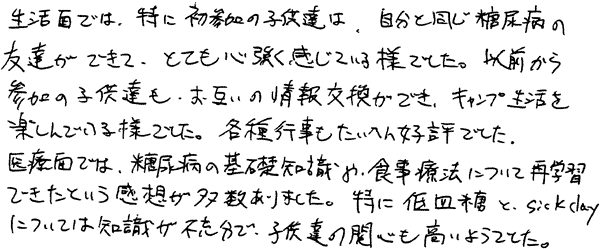 生活面では、特に初参加の子供達は、自分と同じ糖尿病の
友達ができて、とても心強く感じている様でした。以前から
参加の子供達も、お互いの情報交換ができ、キャンプ生活を
楽しんでいる様でした。各種行事もたいへん好評でした。
医療面では、糖尿病の基礎知識や、食事療法について再学習
できたという感想が多数ありました。特に低血糖と、sick day
については知識が不充分で、子供達の関心も高いようでした。